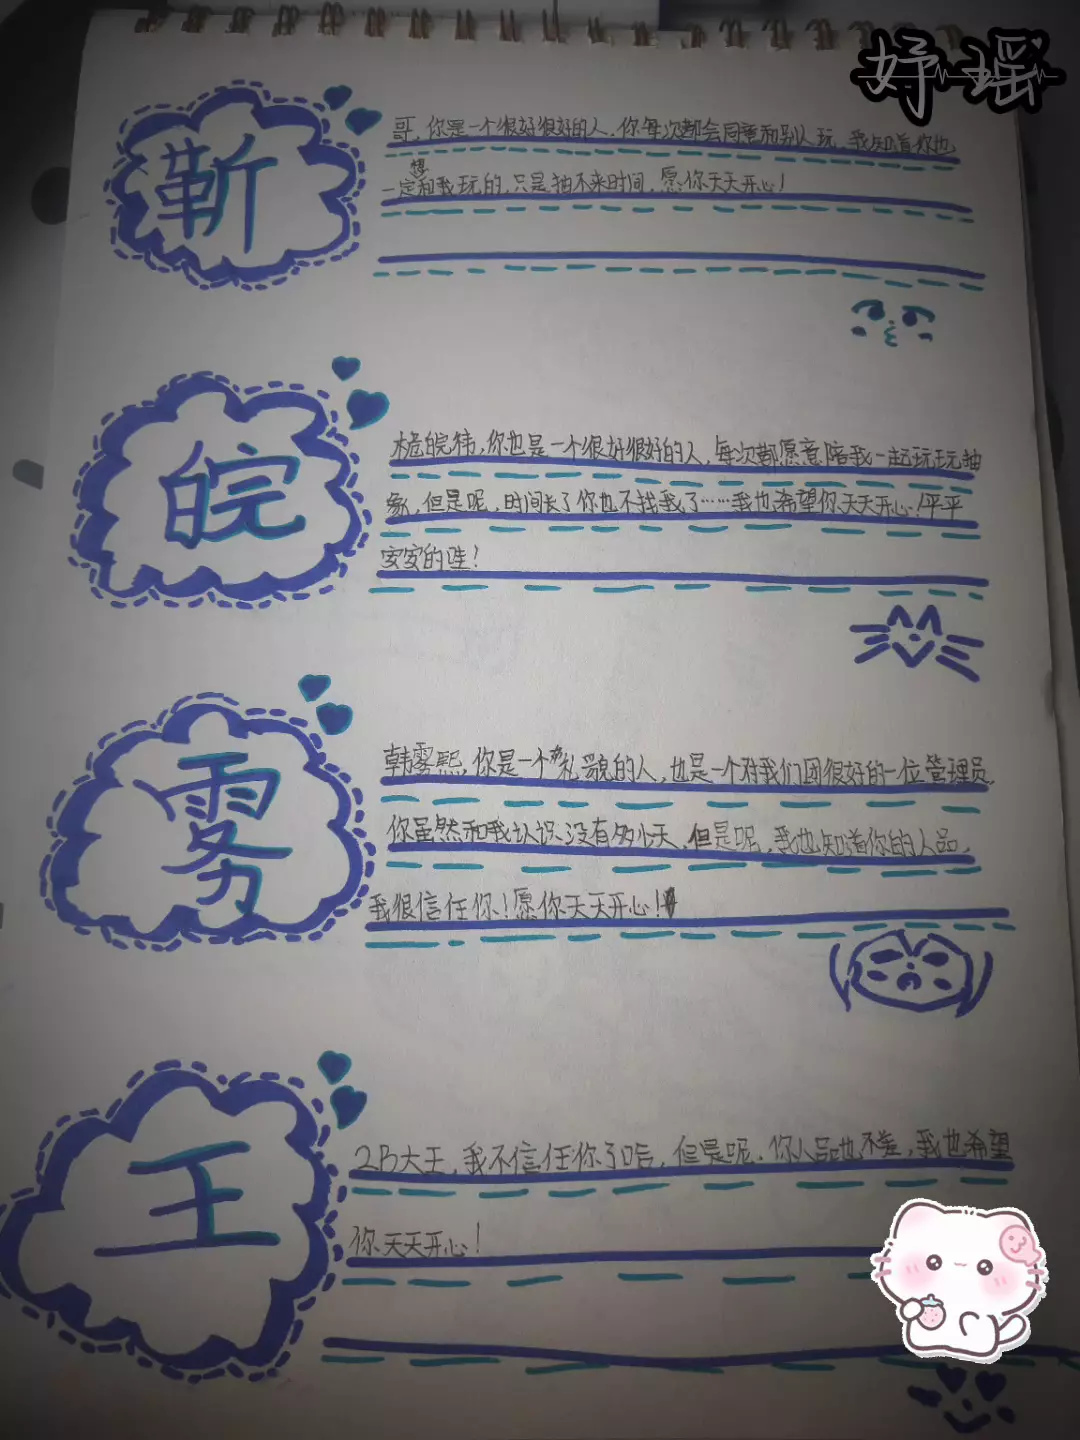 妤瑶
靳
哥，你是一个很好很好的人，你每次都会同意和别人玩，我知道你也
想
一定和我玩的，只是抽不来时间，愿你天天开心！
皖
皖祎，你也是一个很好很好的人，每次都愿意陪我一起玩玩抽
象，但是呢，时间长了你也不找我了……我也希望你天天开心！平平
安安的哇！
雾
韩雾熙，你是一个有礼貌的人，也是一个对我们团很好的一位管理员，
你虽然和我认识没有多少天，但是呢，我也知道你的人品，
我很信任你！愿你天天开心！
王
2B大王，我不信任你了哈，但是呢，你人品也不差，我也希望
你天天开心！